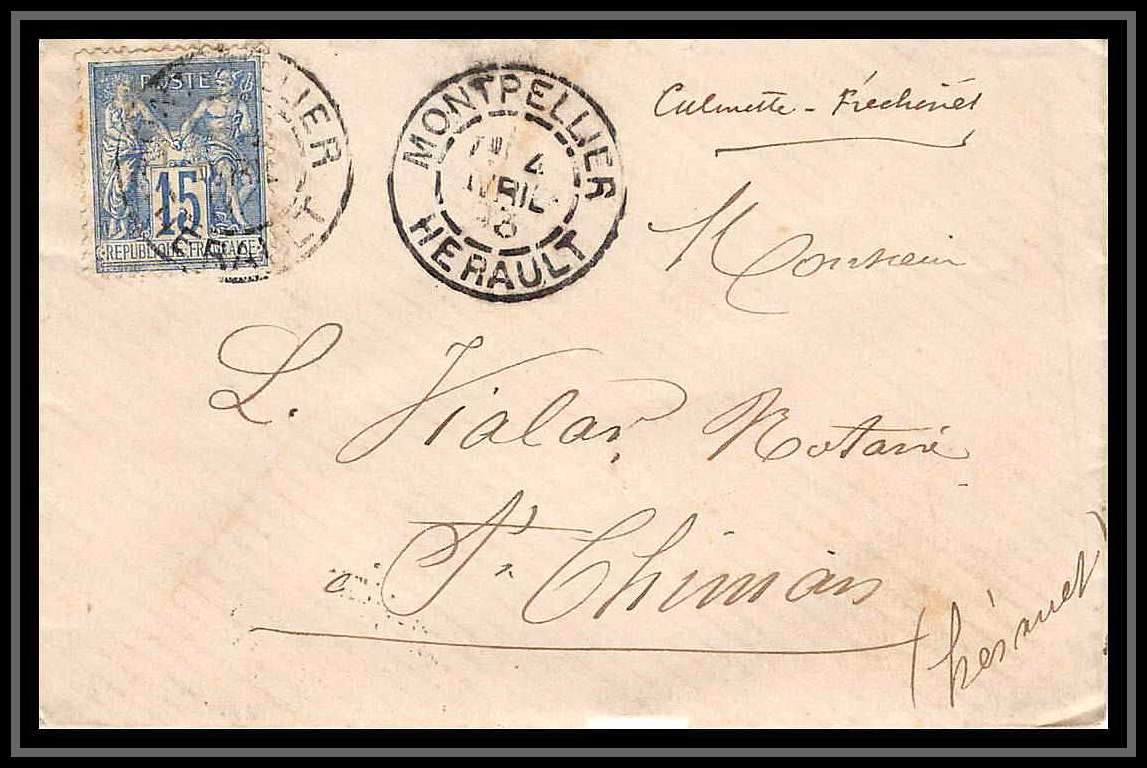 POSTES
15
REPUBLIQUE FRANÇAISE
MONTPELLIER
4
AVRIL
HERAULT
Culmette -
Monsieur
L. Vialar, Notaire
à St. Chinian
(Hérault)